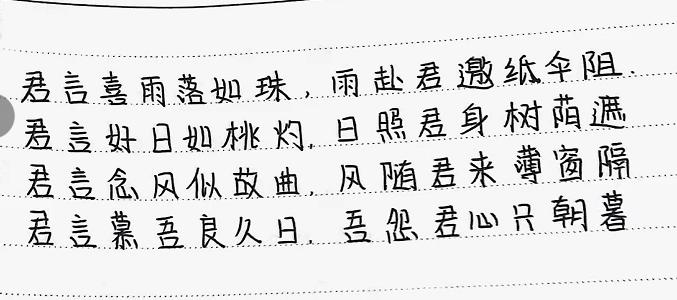 君言喜雨落如珠,雨赴君邀纸伞阻.
君言好日如桃灼,日照君身树荫遮
君言念风似故曲,风随君来薄窗隔
君言慕吾良久日,吾怨君心只朝暮